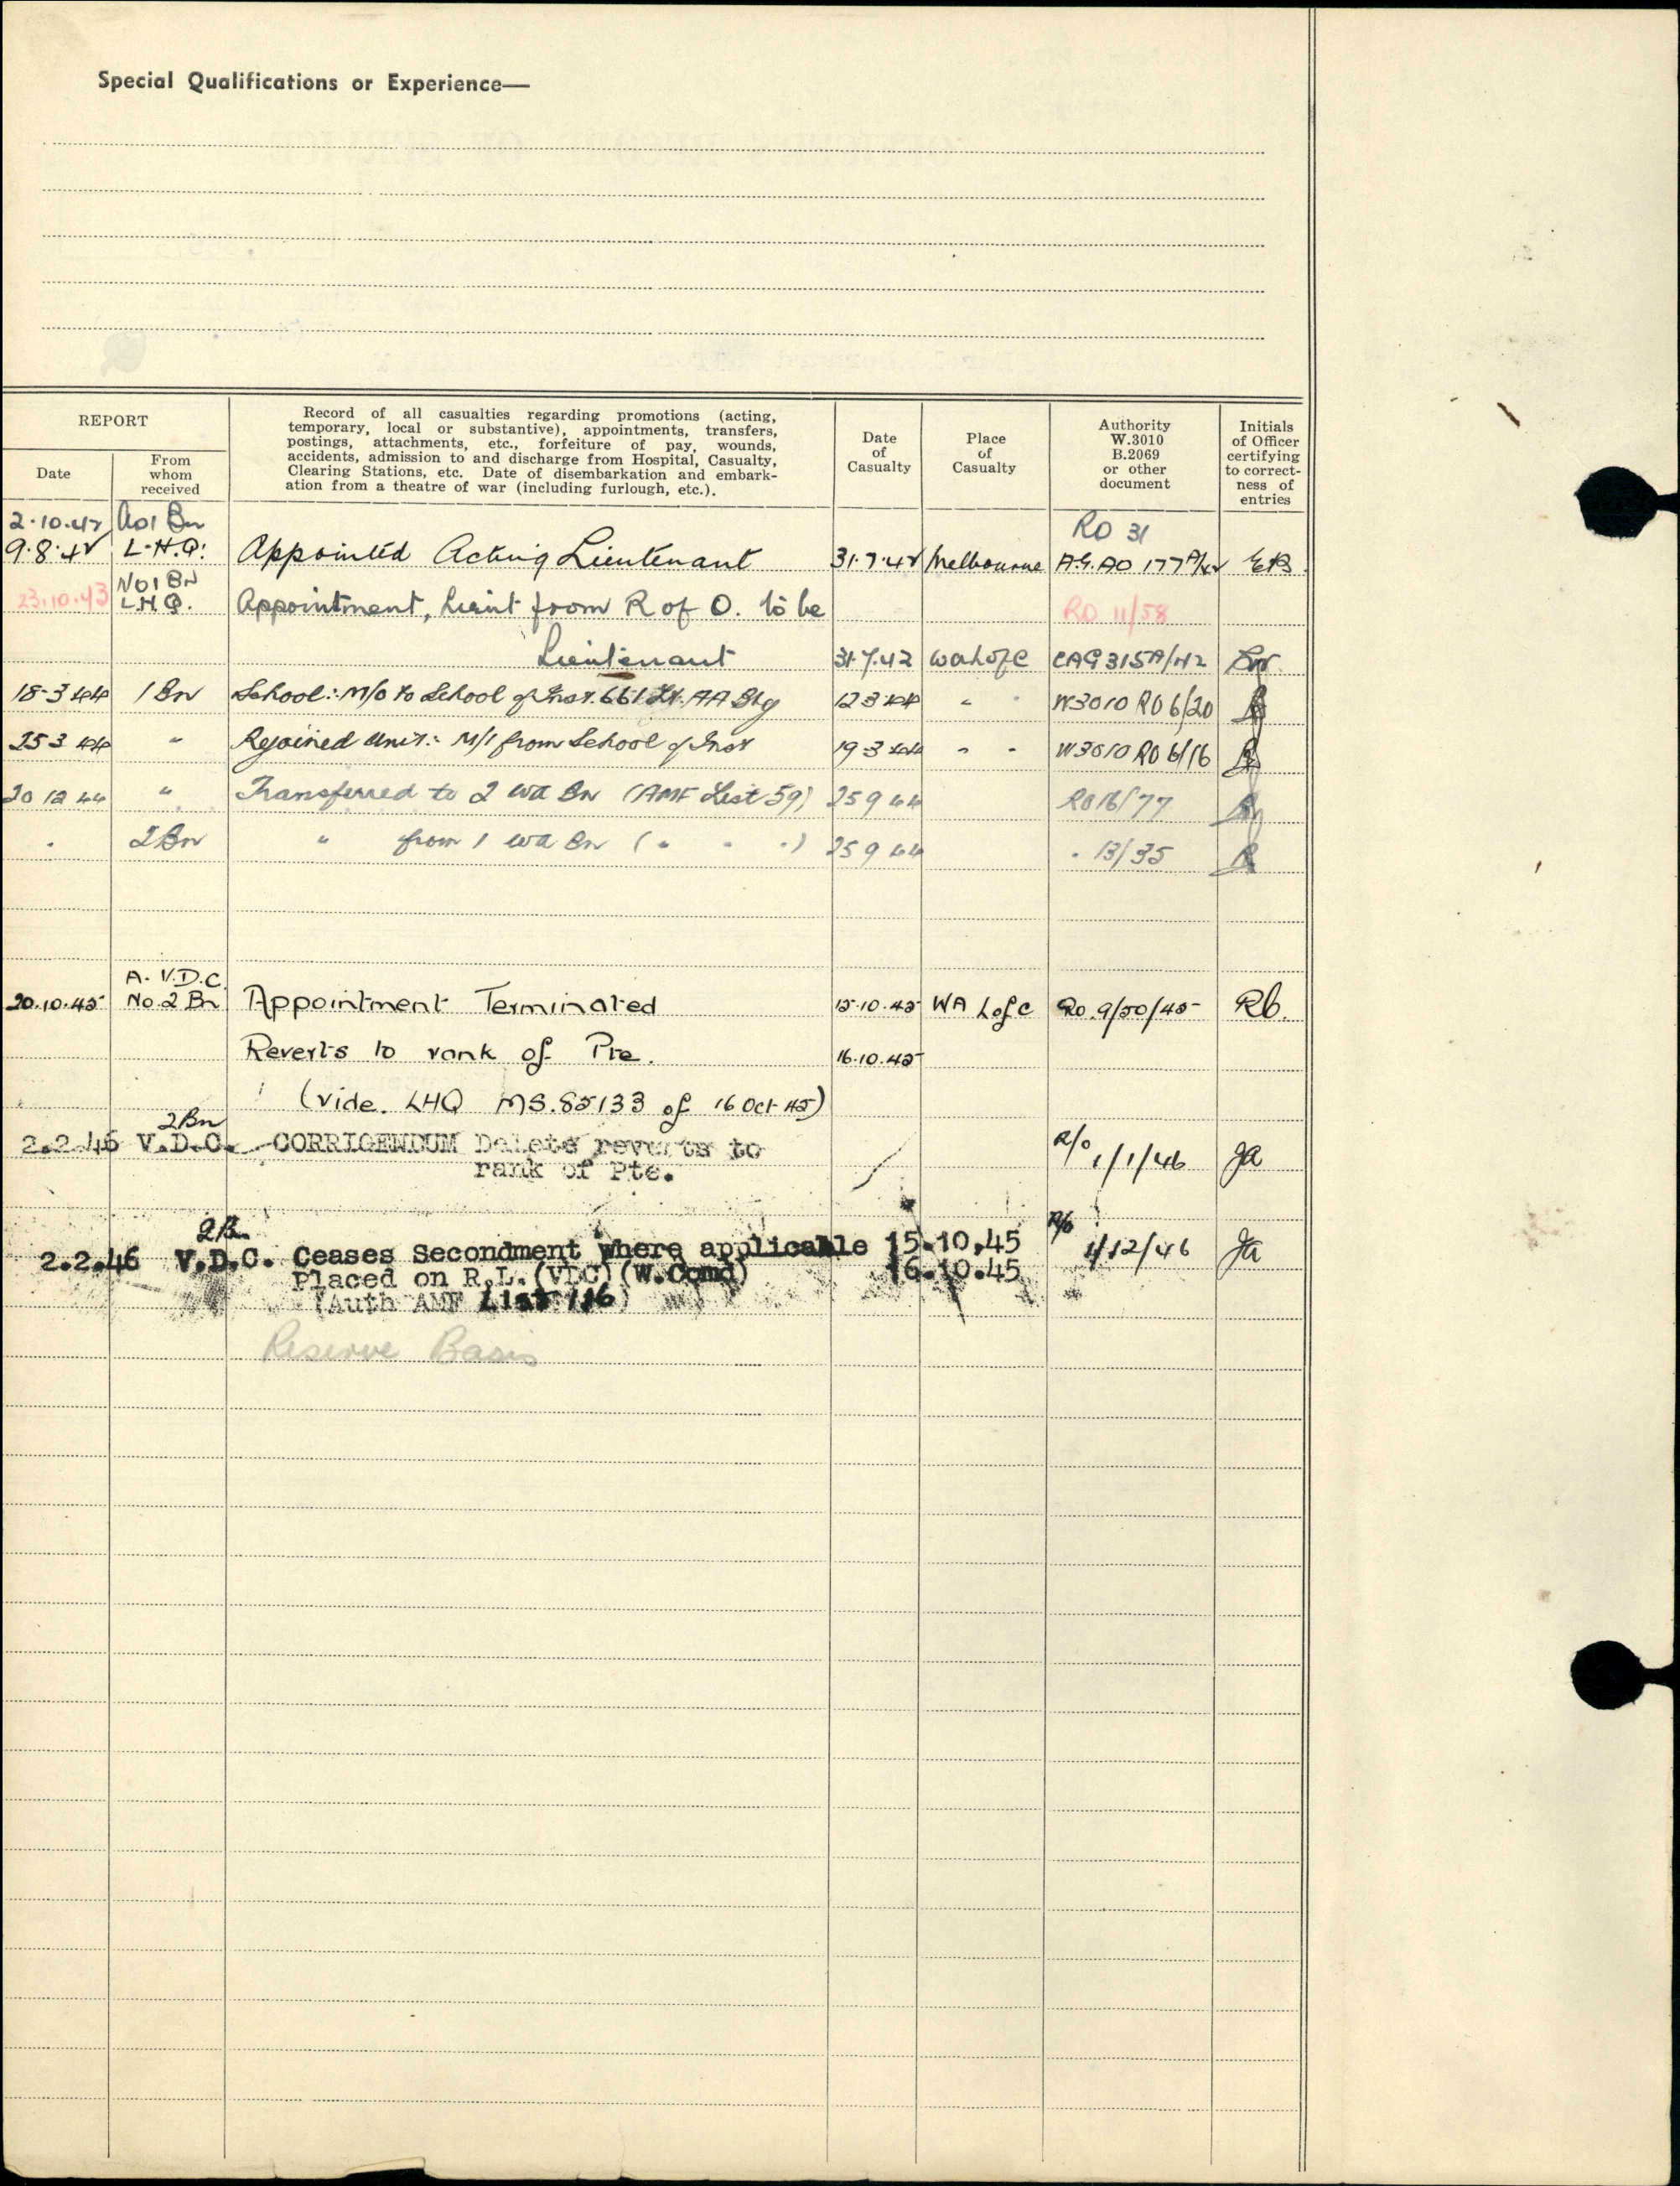 Special Qualifications or Experience—
REPORT
Date
From
whom
received
Record of all casualties regarding promotions (acting,
temporary, local or substantive), appointments, transfers,
postings, attachments, etc., forfeiture of pay, wounds,
accidents, admission to and discharge from Hospital, Casualty,
Clearing Stations, etc. Date of disembarkation and embark-
ation from a theatre of war (including furlough, etc.).
Date
of
Casualty
Place
of
Casualty
Authority
W.3010
B.2069
or other
document
Initials
of Officer
certifying
to correct-
ness of
entries
2.10.42 Bn RO 31
9.8.42 L.H.Q. Appointed Acting Lieutenant 31.7.42 Melbourne A.G. AO 177
No1 Bn
23.10.43 L.H.Q. Appointment, Lieut from R of O. to be RO 11/58
Lieutenant 31.7.42 WA L of C CAG 315A/42
18-3 44 1 Bn School: M/O to School of Inst. 66 Lt. AA Bty 12 3 44 " " W3010 RO 6/20
25 3 44 " Rejoined Unit: M/I from School of Inst 19 3 44 " " W3010 RO 6/16
20 12 44 " Transferred to 2 WA Bn (AMF List 59) 25 9 44 RO 16/77
" 2 Bn " from 1 WA Bn ( " " " ) 25 9 44 " 13/35
A. V.D.C.
20.10.45 No.2 Bn Appointment Terminated 15.10.45 WA L of C RO.9/50/45 Rb.
Reverts to rank of Pte. 16.10.45
(vide. LHQ MS.85133 of 16 Oct 45)
2Bn
2.2.46 V.D.C. CORRIGENDUM Delete reverts to R/O 1/1/46 JA
rank of Pte.
2Bn R/O
2.2.46 V.D.C. Ceases Secondment where applicable 15.10.45 1/12/46 JA
Placed on R.L. (VDC) (W.Comd) 16.10.45
(Auth AMF List 116)
Reserve Basis